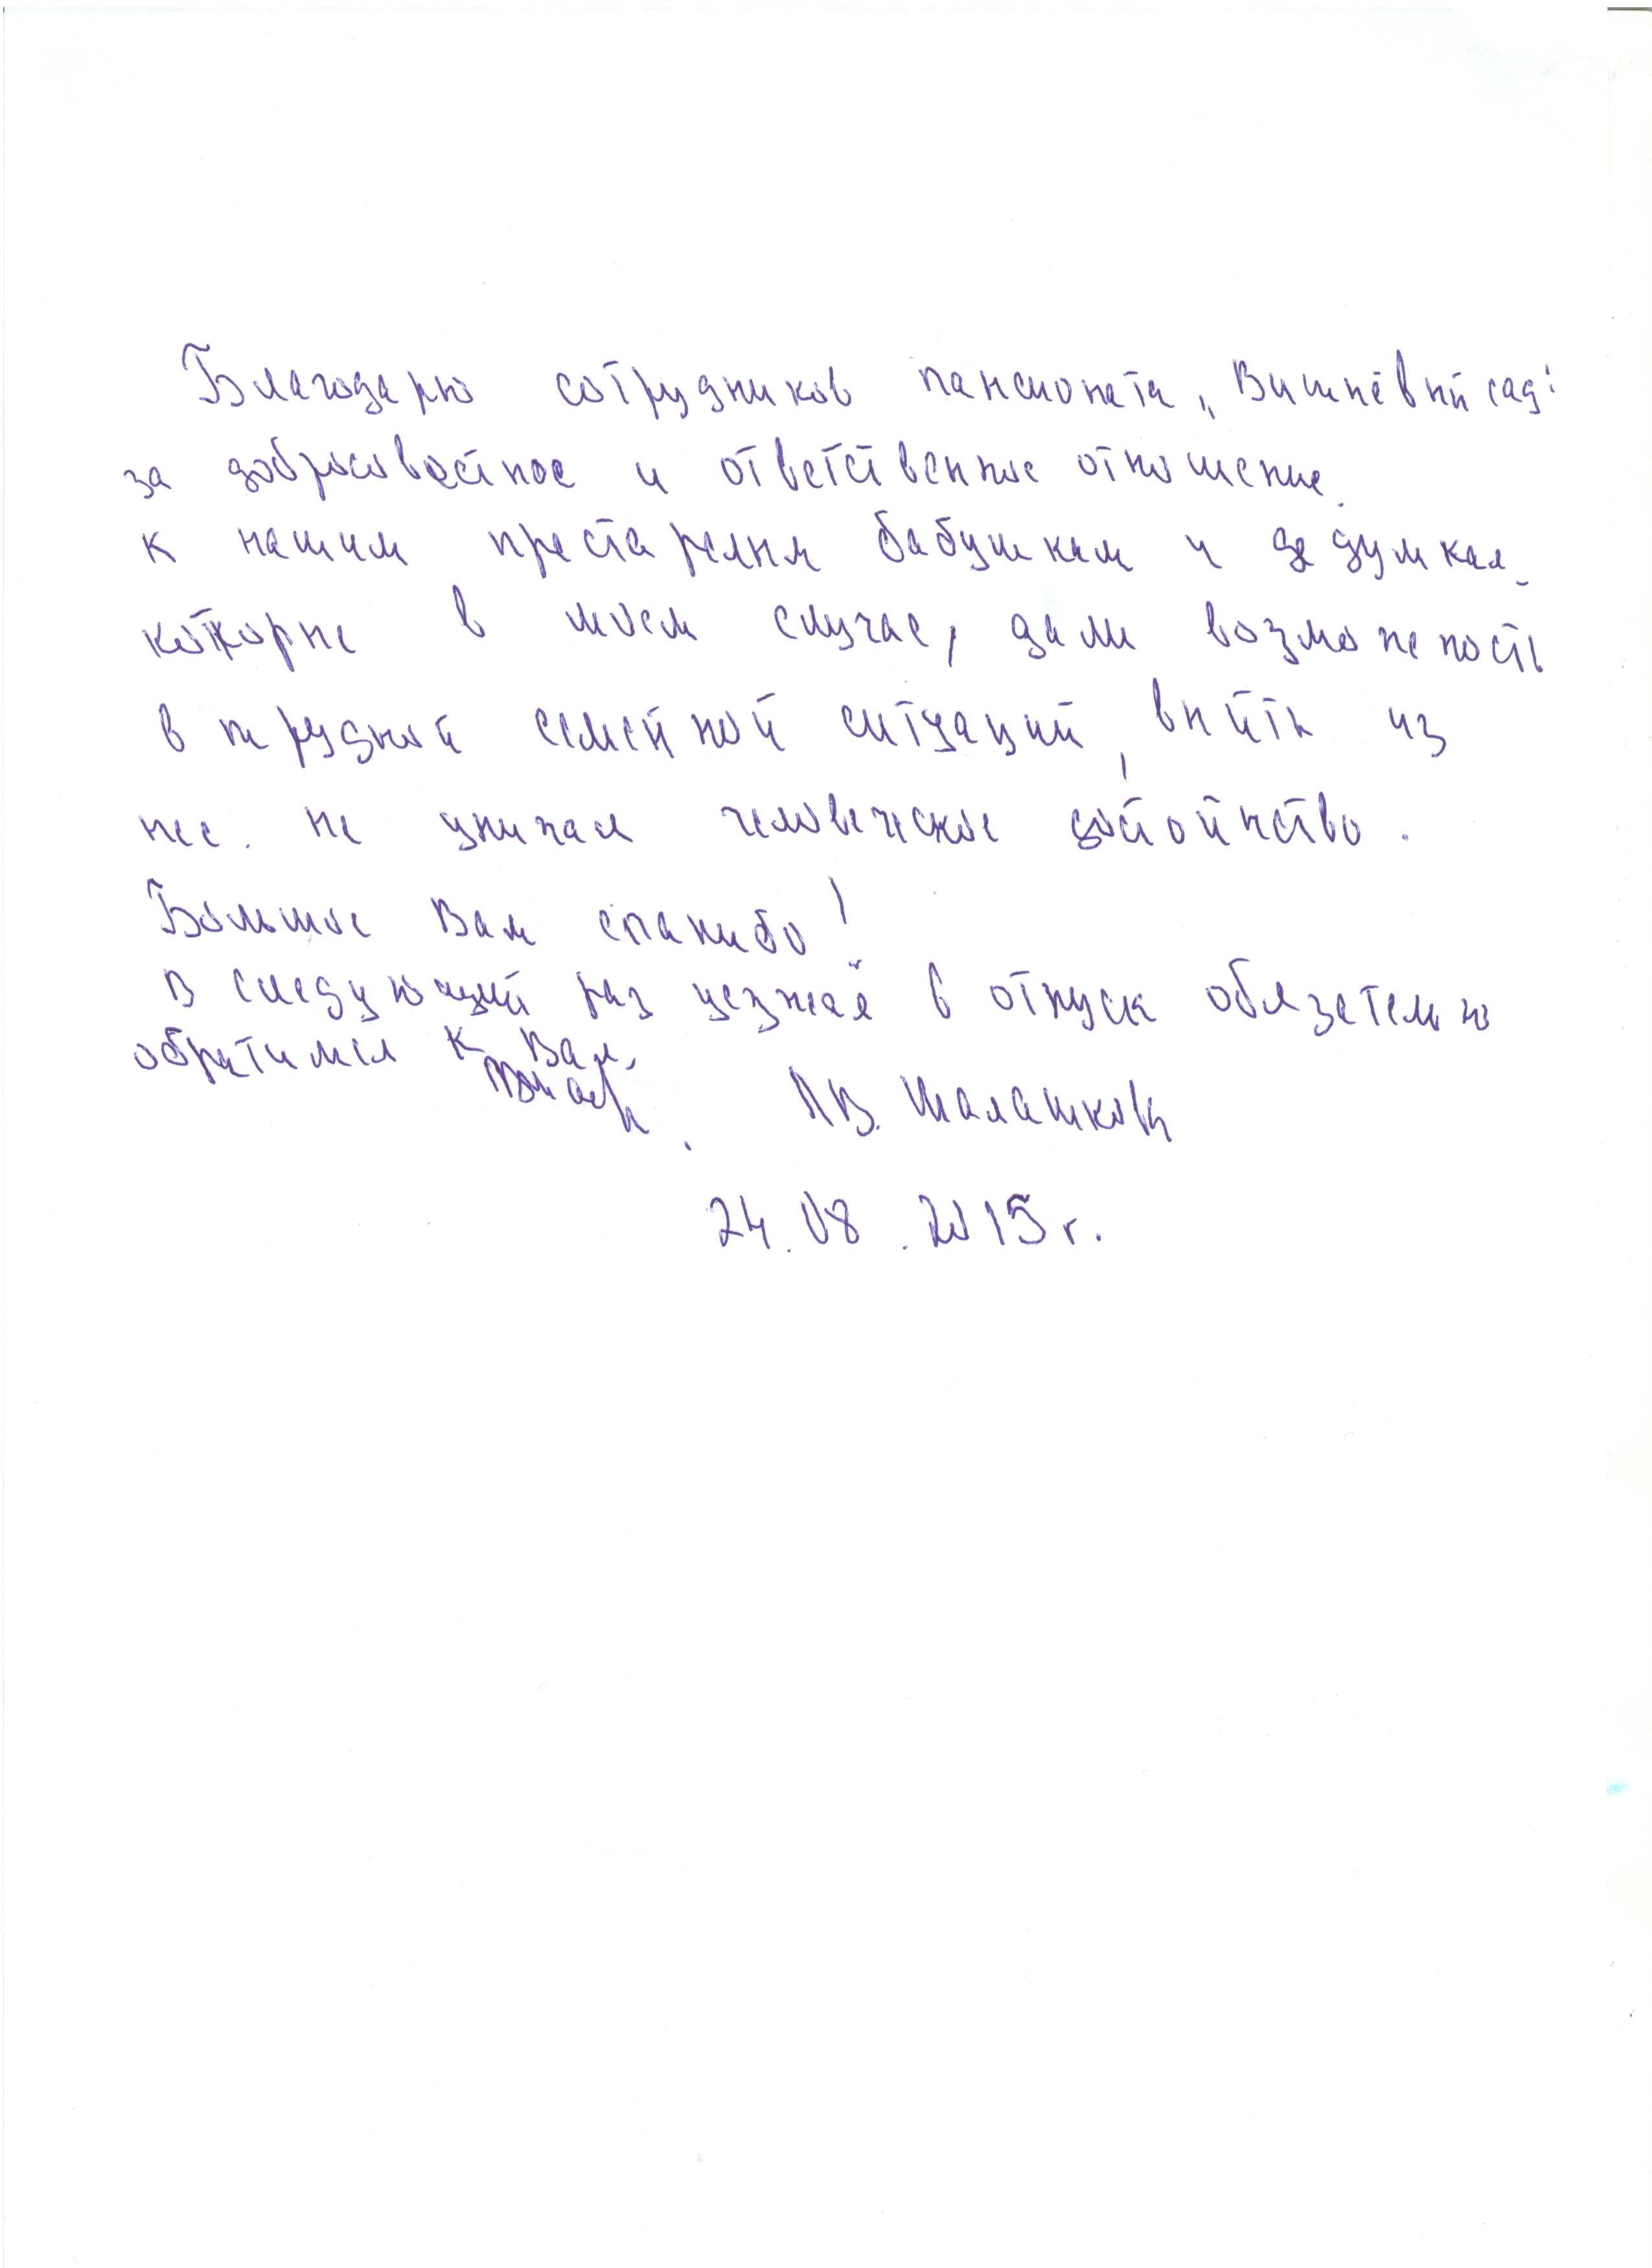 Благодарю сотрудников пансионата „Вишнёвый сад"
за добросовестное и ответственное отношение
к нашим престарелым бабушкам и дедушкам
которые в моем случае, дали возможность
в трудной семейной ситуаций, выйти из
нее не унижая человеческое достоинство.
Большое Вам спасибо!
В следующий раз уезжая в отпуск обязательно
обратимся к Вам.
Л.В. Шалашкова
24.08.2015 г.